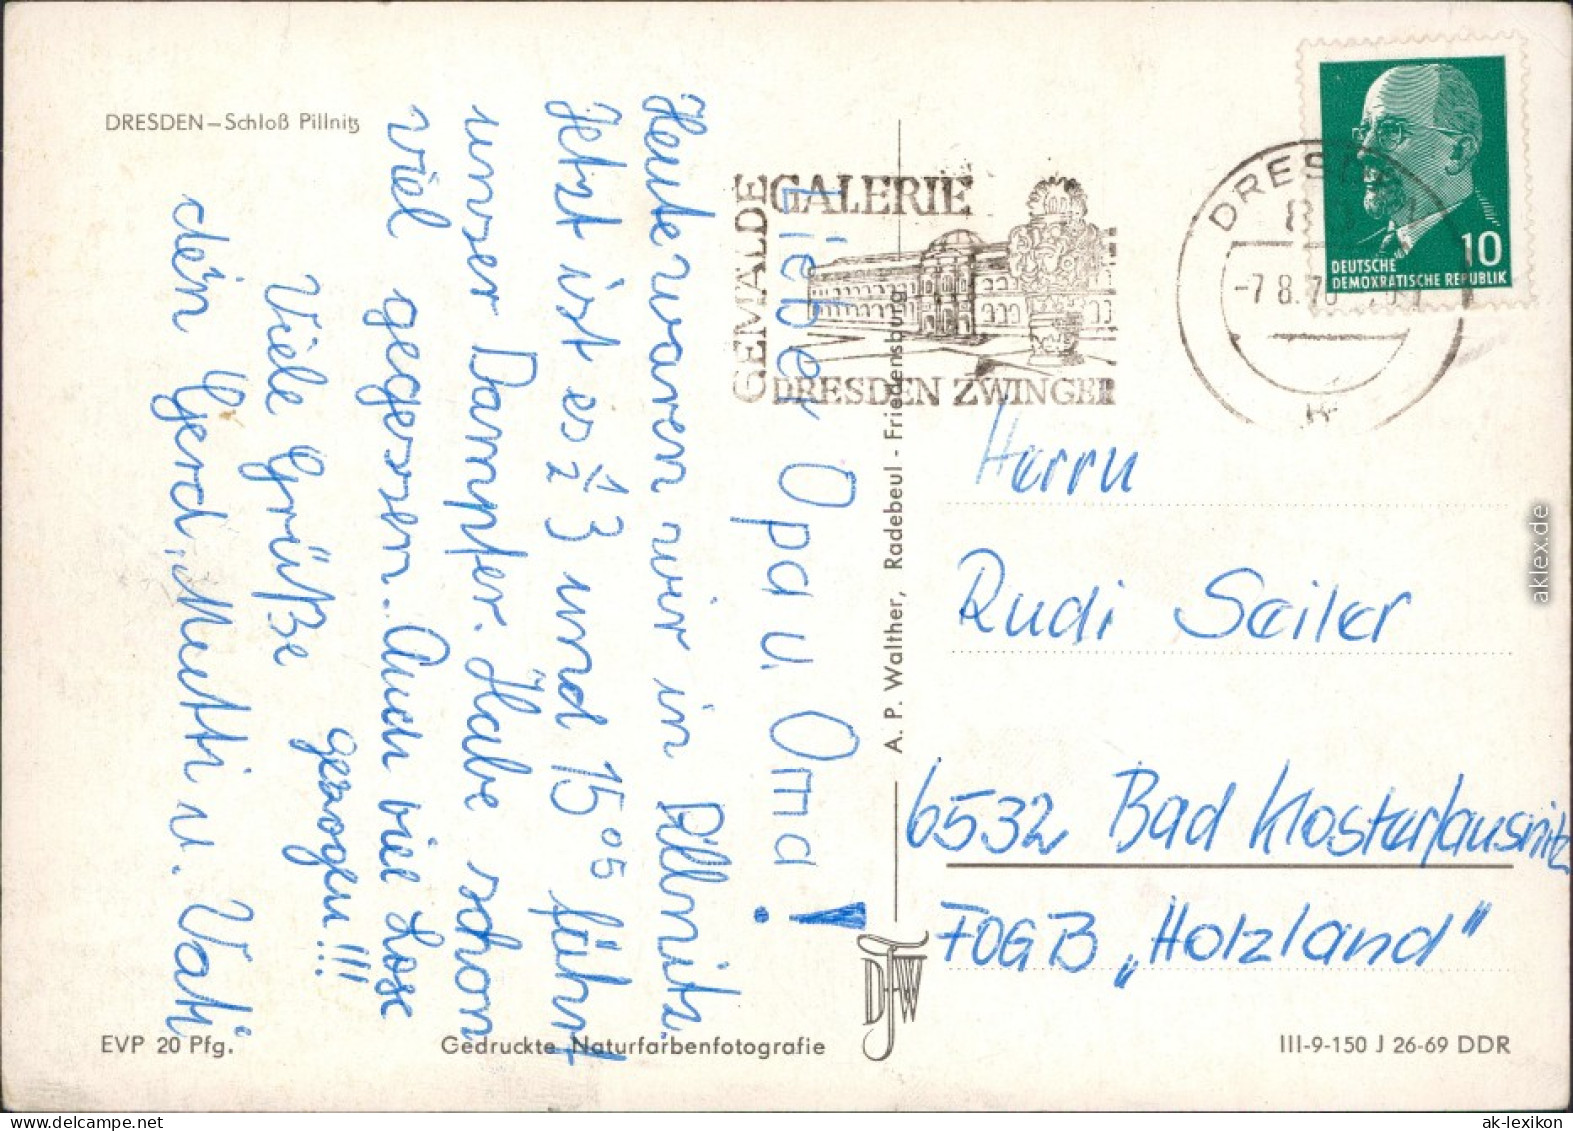 DRESDEN – Schloß Pillnitz
Lieber Opa u. Oma!
Heute waren wir in Pillnitz.
Jetzt ist es ½ 3 und 15⁰⁵ fährt
unser Dampfer. Habe schon
viel gegessen. Auch viel Lose
gezogen!!!
Viele Grüße
dein Gerd, Mutti u. Vati
GEMÄLDE
GALERIE
DRESDEN ZWINGER
DRESDEN
-7 8.70
10
DEUTSCHE
DEMOKRATISCHE REPUBLIK
A. P. Walther, Radebeul - Friedensburg
Herrn
Rudi Seiler
6532 Bad Klosterlausnitz
FDGB „Holzland"
DFW
EVP 20 Pfg.
Gedruckte Naturfarbenfotografie
III-9-150 J 26-69 DDR
aklex.de
www.delcampe.net
ak-lexikon